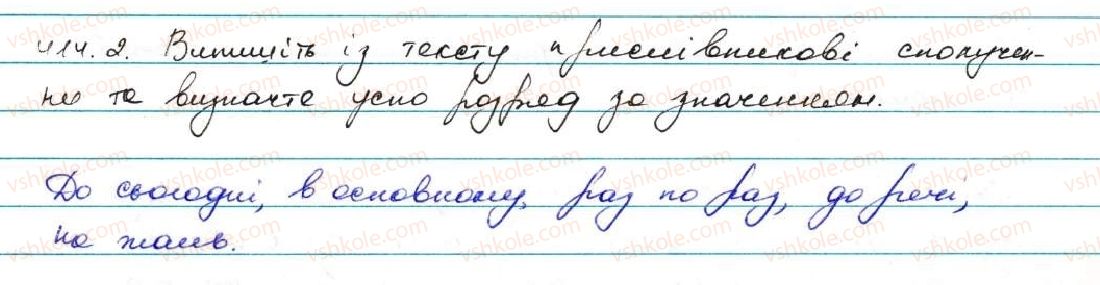 414.2. Випишіть із тексту прислівникові сполучен-
ня та визначте усно розряд за значенням.
До сьогодні, в основному, раз по раз, до речі,
на жаль.